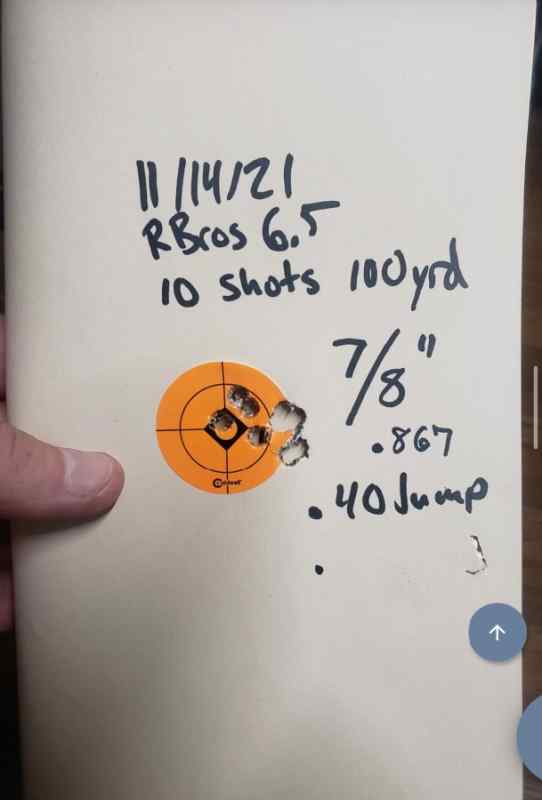 11/14/21
RBros 6.5
10 shots 100yrd
7/8"
.867
.40 Jump
.